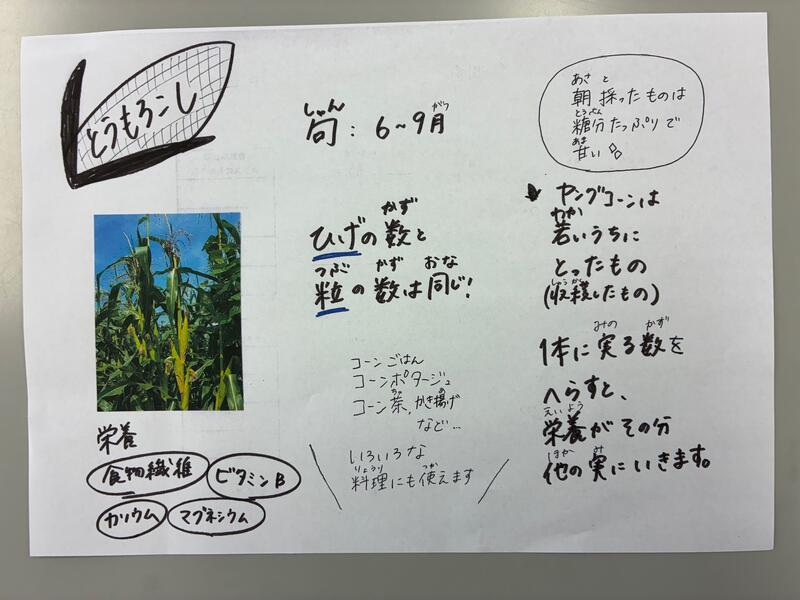 とうもろこし
しゅん がつ
旬:6~9月
あさ と
朝採ったものは
とうぶん
糖分たっぷりで
あま
甘い
かず
ひげの数と
つぶ かず おな
粒の数は同じ!
ヤングコーンは
わか
若いうちに
とったもの
しゅうかく
(収穫したもの)
みの かず
1本に実る数を
へらすと、
えいよう
栄養がその分
ほか み
他の実にいきます。
コーンごはん
コーンポタージュ
ちゃ あ
コーン茶、かき揚げ
など…
いろいろな
りょうり つか
料理にも使えます
栄養
食物繊維 ビタミンB
カリウム マグネシウム